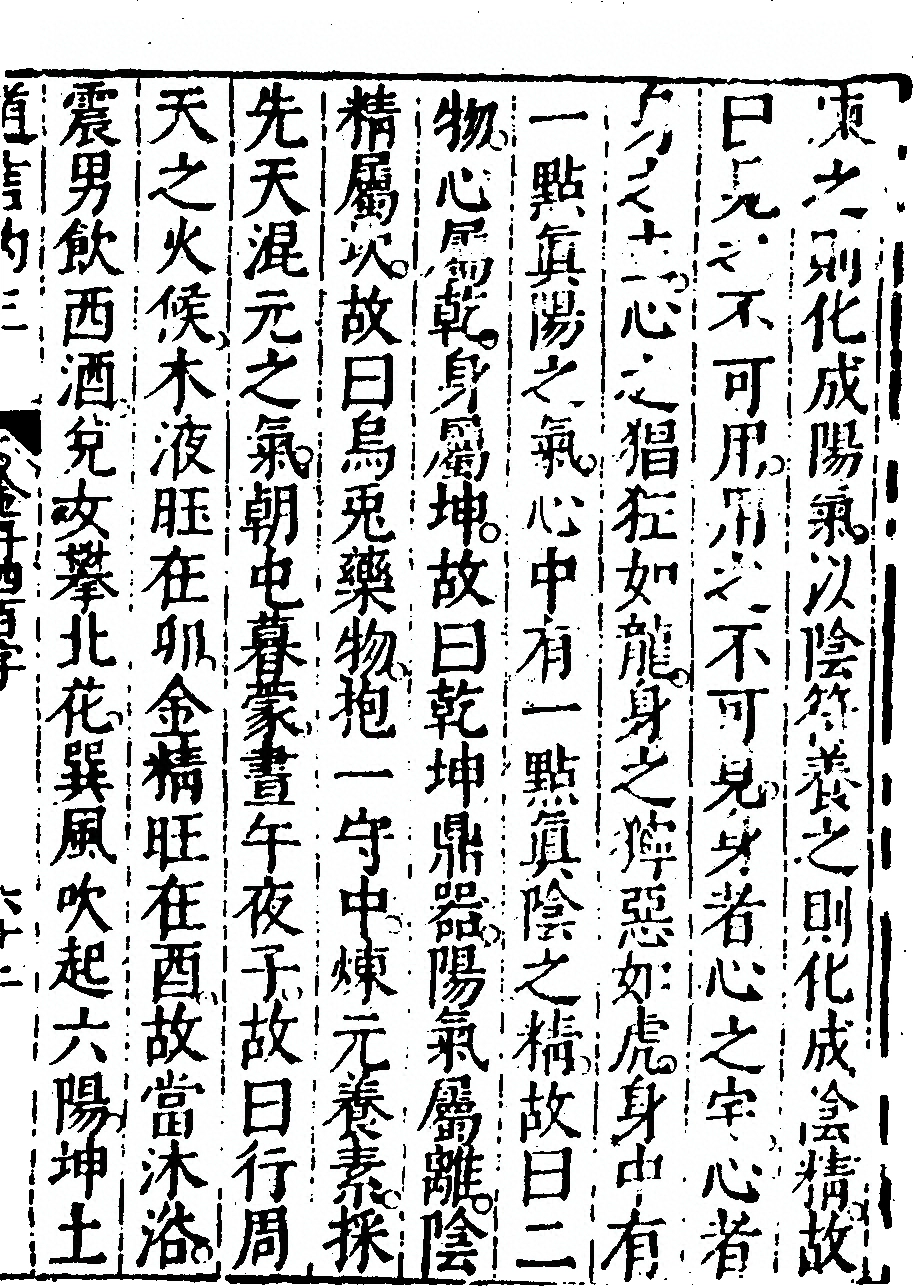 煉之則化成陽氣以陰符養之則化成陰精故
曰見之不可用用之不可見身者心之宅心者
身之主心之猖狂如龍身之獰惡如虎身中有
一點眞陽之氣心中有一點眞陰之精故曰二
物心屬乾身屬坤故曰乾坤鼎器陽氣屬離陰
精屬坎故曰烏兎藥物抱一守中煉元養素採
先天混元之氣朝屯暮蒙晝午夜子故曰行周
天之火候木液旺在卯金精旺在酉故當沐浴
震男飮西酒兌女攀北花巽風吹起六陽坤土
道書 三 金丹四百字 六十二